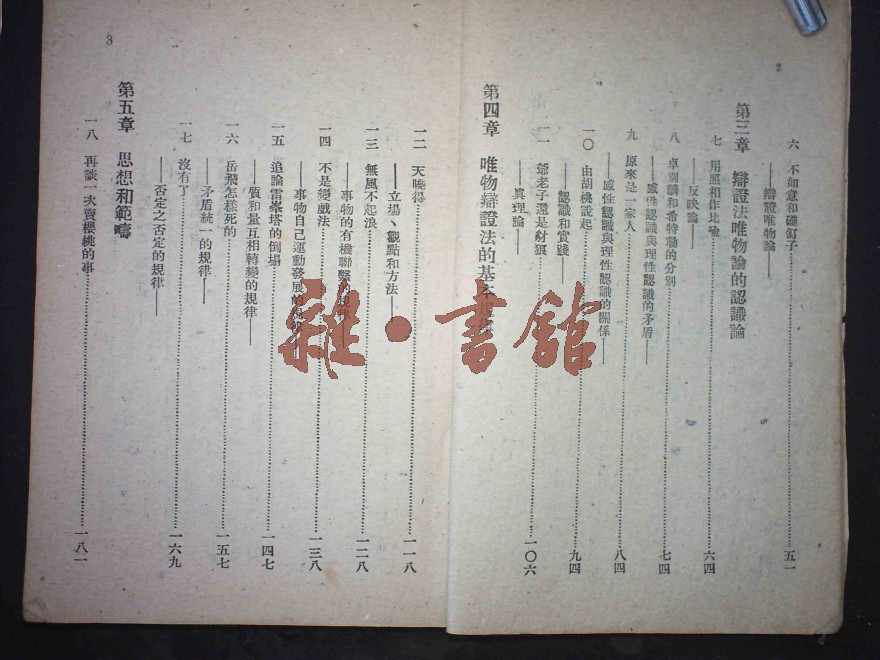 六 不如意和碰釘子……五一
——辯證唯物論——
第三章 辯證法唯物論的認識論
七 用照相作比喻……六四
——反映論——
八 卓別麟和希特勒的分別……七四
——感性認識與理性認識的矛盾——
九 原來是一家人……八四
——感性認識與理性認識的關係——
一〇 由胡桃說起……九四
——認識和實踐——
一一 爺老子還是豺狼……一〇六
——眞理論——
第四章 唯物辯證法的基本
3
一二 天曉得……一一八
——立場、觀點和方法——
一三 無風不起浪……一二八
——事物的有機聯繫的規律——
一四 不是變戲法……一三八
——事物自己運動發展的
一五 追論雷峯塔的倒塌……一四七
——質和量互相轉變的規律——
一六 岳飛怎樣死的……一五七
——矛盾統一的規律——
一七 沒有了……一六九
——否定之否定的規律——
第五章 思想和範疇
一八 再談一次賣櫻桃的事……一八一
雜·書舘